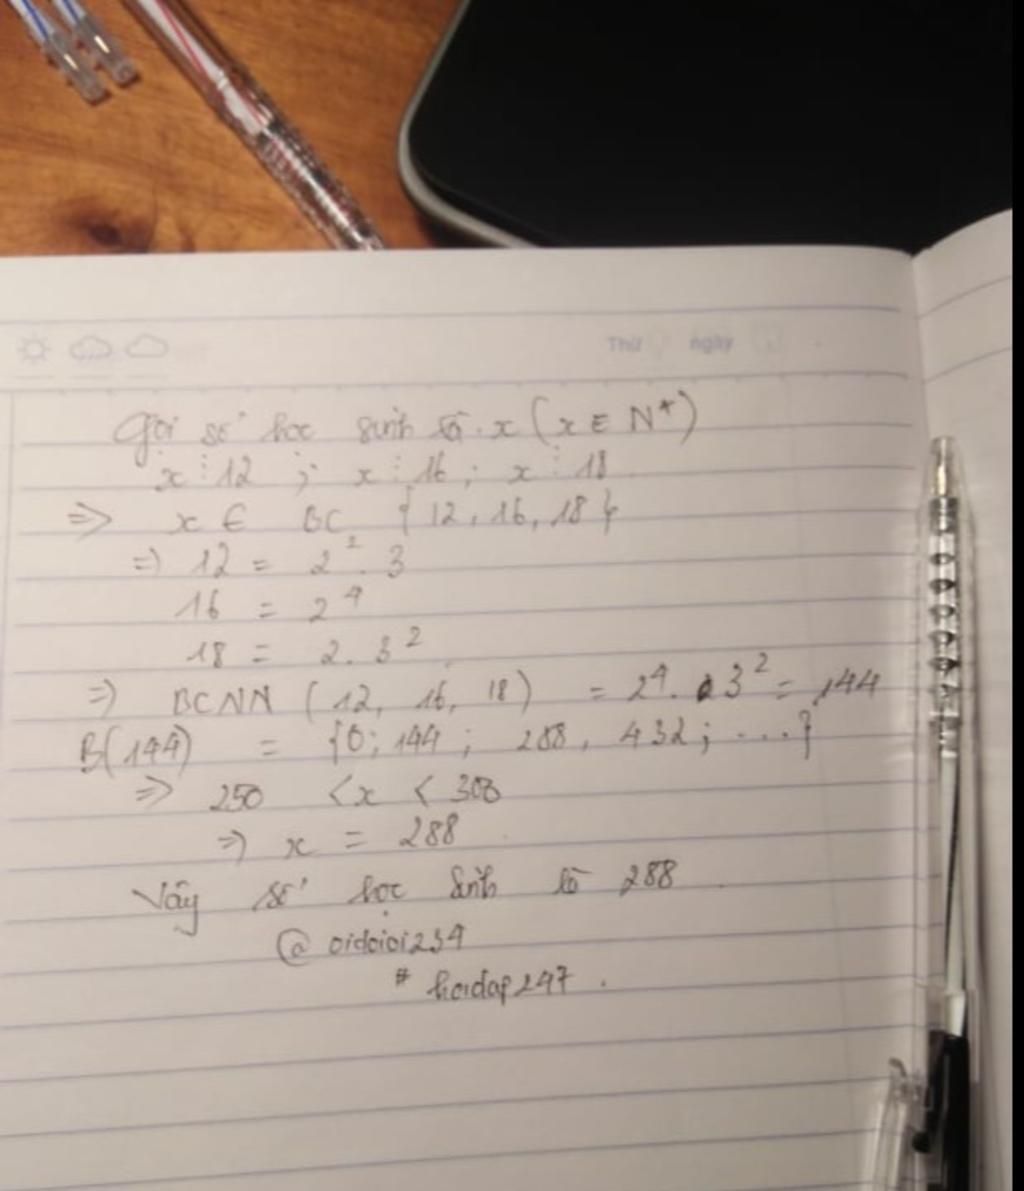 Thứ ngày
Gọi số học sinh là x (x ∈ N*)
x ⋮ 12 ; x ⋮ 16 ; x ⋮ 18
=> x ∈ BC { 12, 16, 18 }
=) 12 = 2². 3
16 = 2⁴
18 = 2. 3²
=) BCNN (12, 16, 18) = 2⁴. 3² = 144
B(144) = {0; 144 ; 288, 432 ; ...}
=> 250 < x < 300
=) x = 288
Vậy số học sinh là 288
@ oidoioi234
# hoidap247.